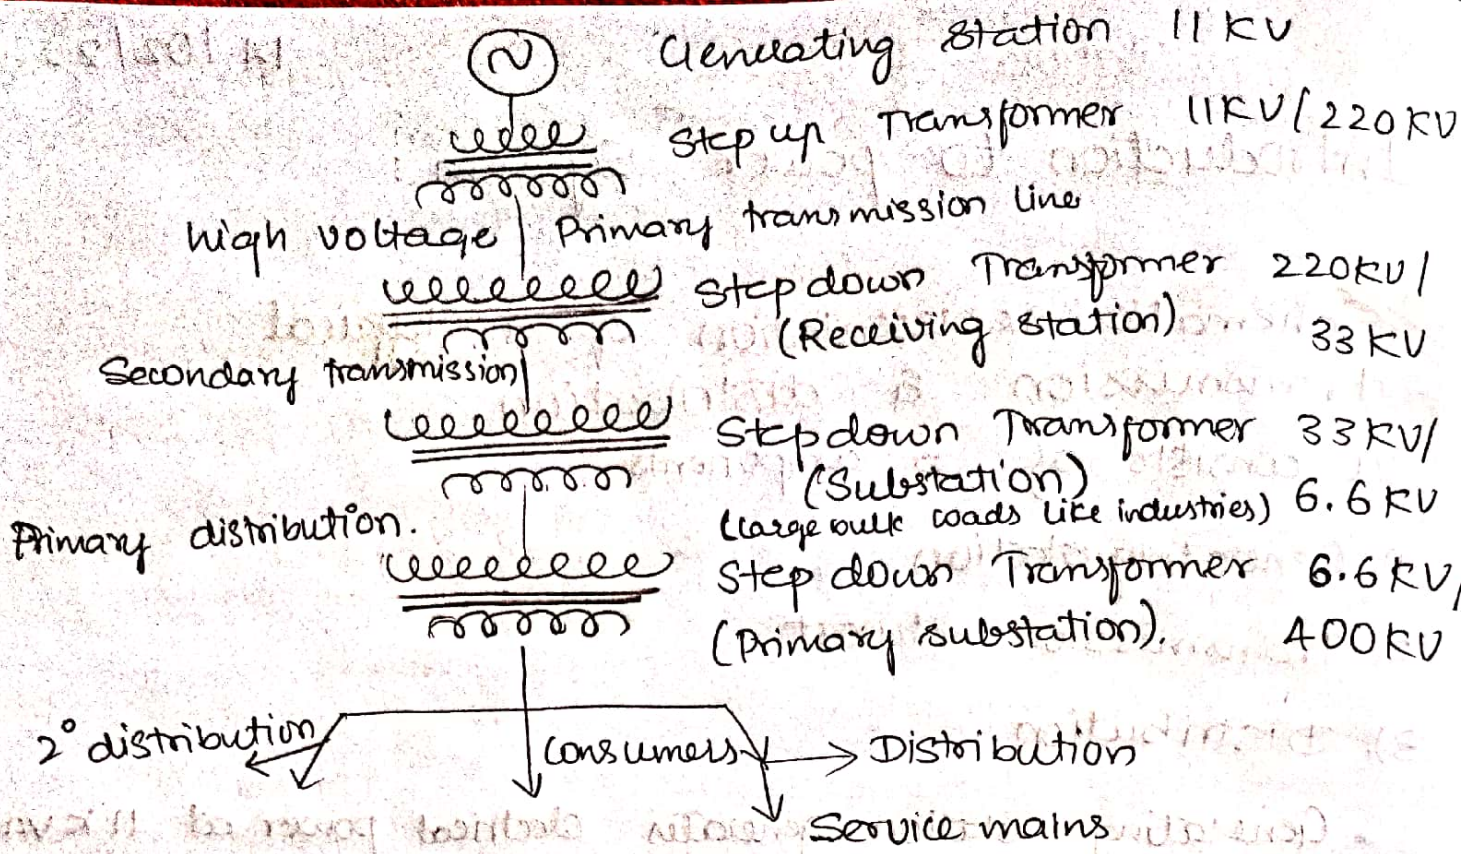 N
Generating station 11 KV
Step up Transformer 11KV/220KV
high voltage Primary transmission line
Step down Transformer 220KV/
(Receiving station) 33 KV
Secondary transmission
Step down Transformer 33KV/
(Substation)
(large bulk loads like industries) 6.6 KV
Primary distribution.
Step down Transformer 6.6 KV/
(Primary substation). 400KV
2° distribution consumers Distribution
Service mains